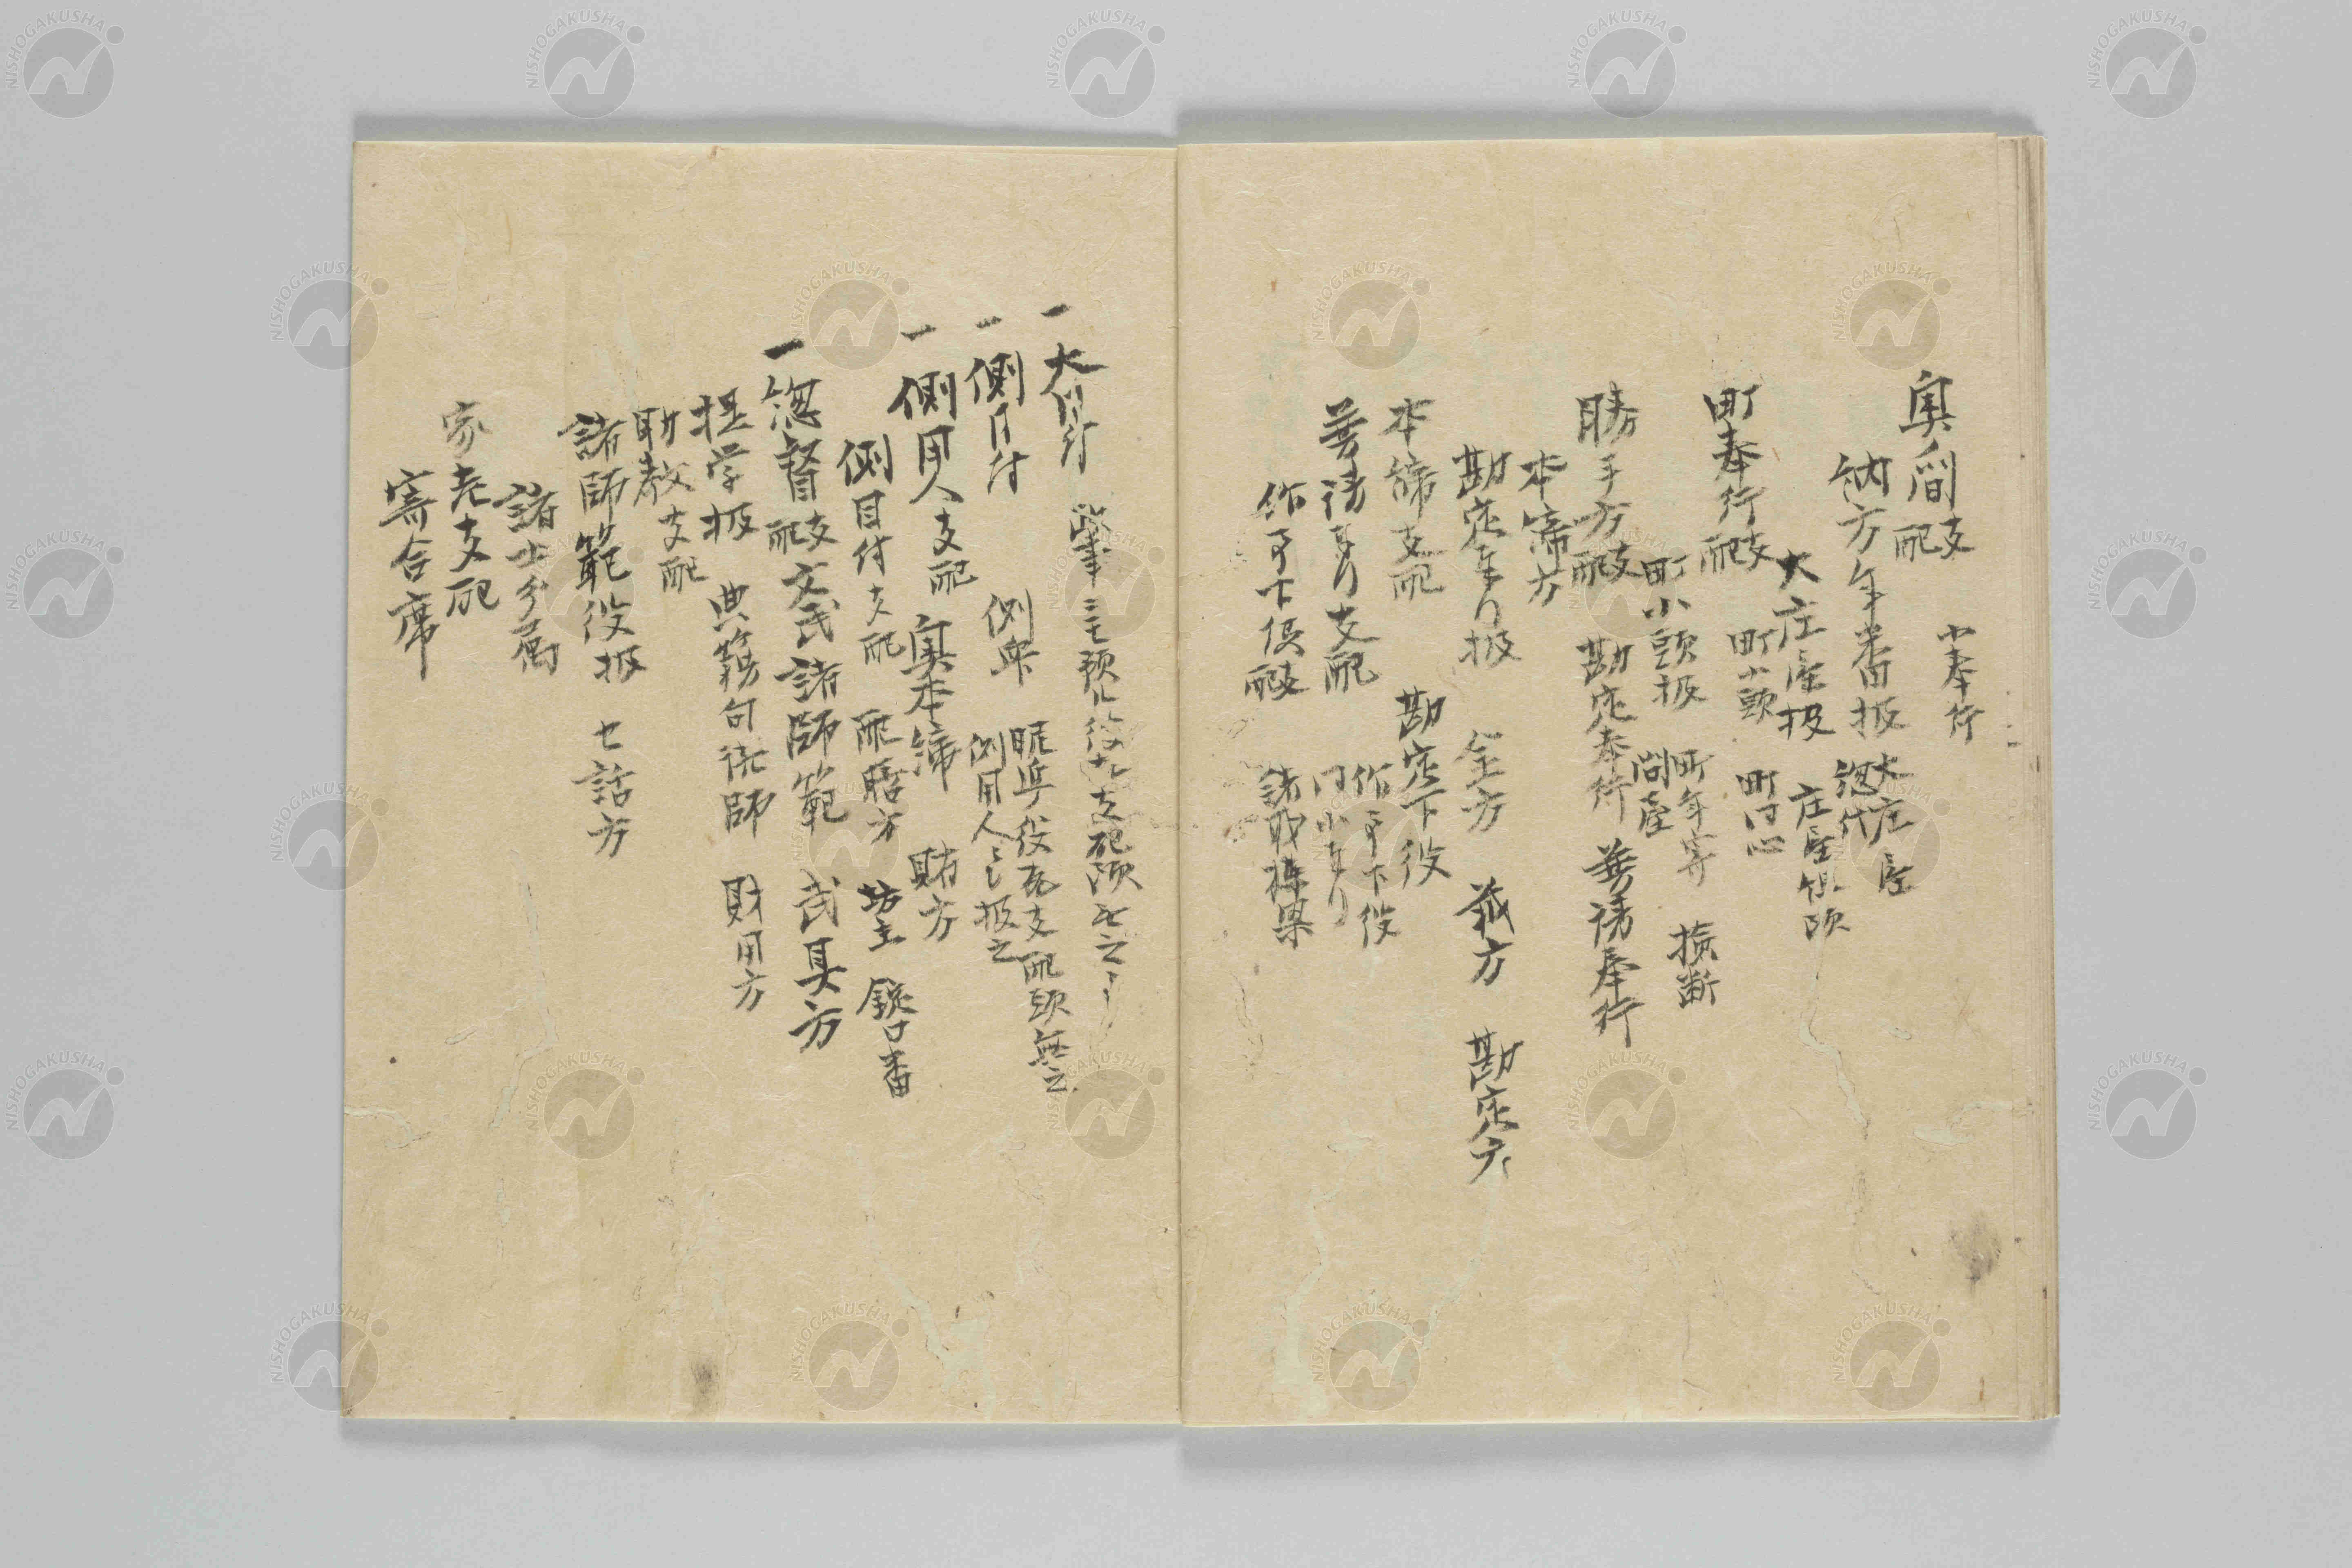 奥ノ間支配　小奉行
納方年番扱　大庄屋　惣代
大庄屋扱　庄屋組頭
町奉行支配　町小頭　町同心
町小頭扱　町年寄　検断　問屋
勝手方支配　勘定奉行　普請奉行
本締方
勘定奉行扱　金方　蔵方　勘定人
本締支配　勘定下役
普請奉行支配　作事下役　同小奉行
作事下役支配　諸職棟梁
一　大目付
一　側目付　側
側用人之扱之
一　側用人支配　奥本締　賄方
側目付支配　配膳方　坊主　錠口番
一　惣督支配　文武諸師範　武具方
掟学扱　典籍　句読師　財用方
助教支配
諸師範役扱　世話方
諸士分属
家老支配
寄合席
NISHOGAKUSHA